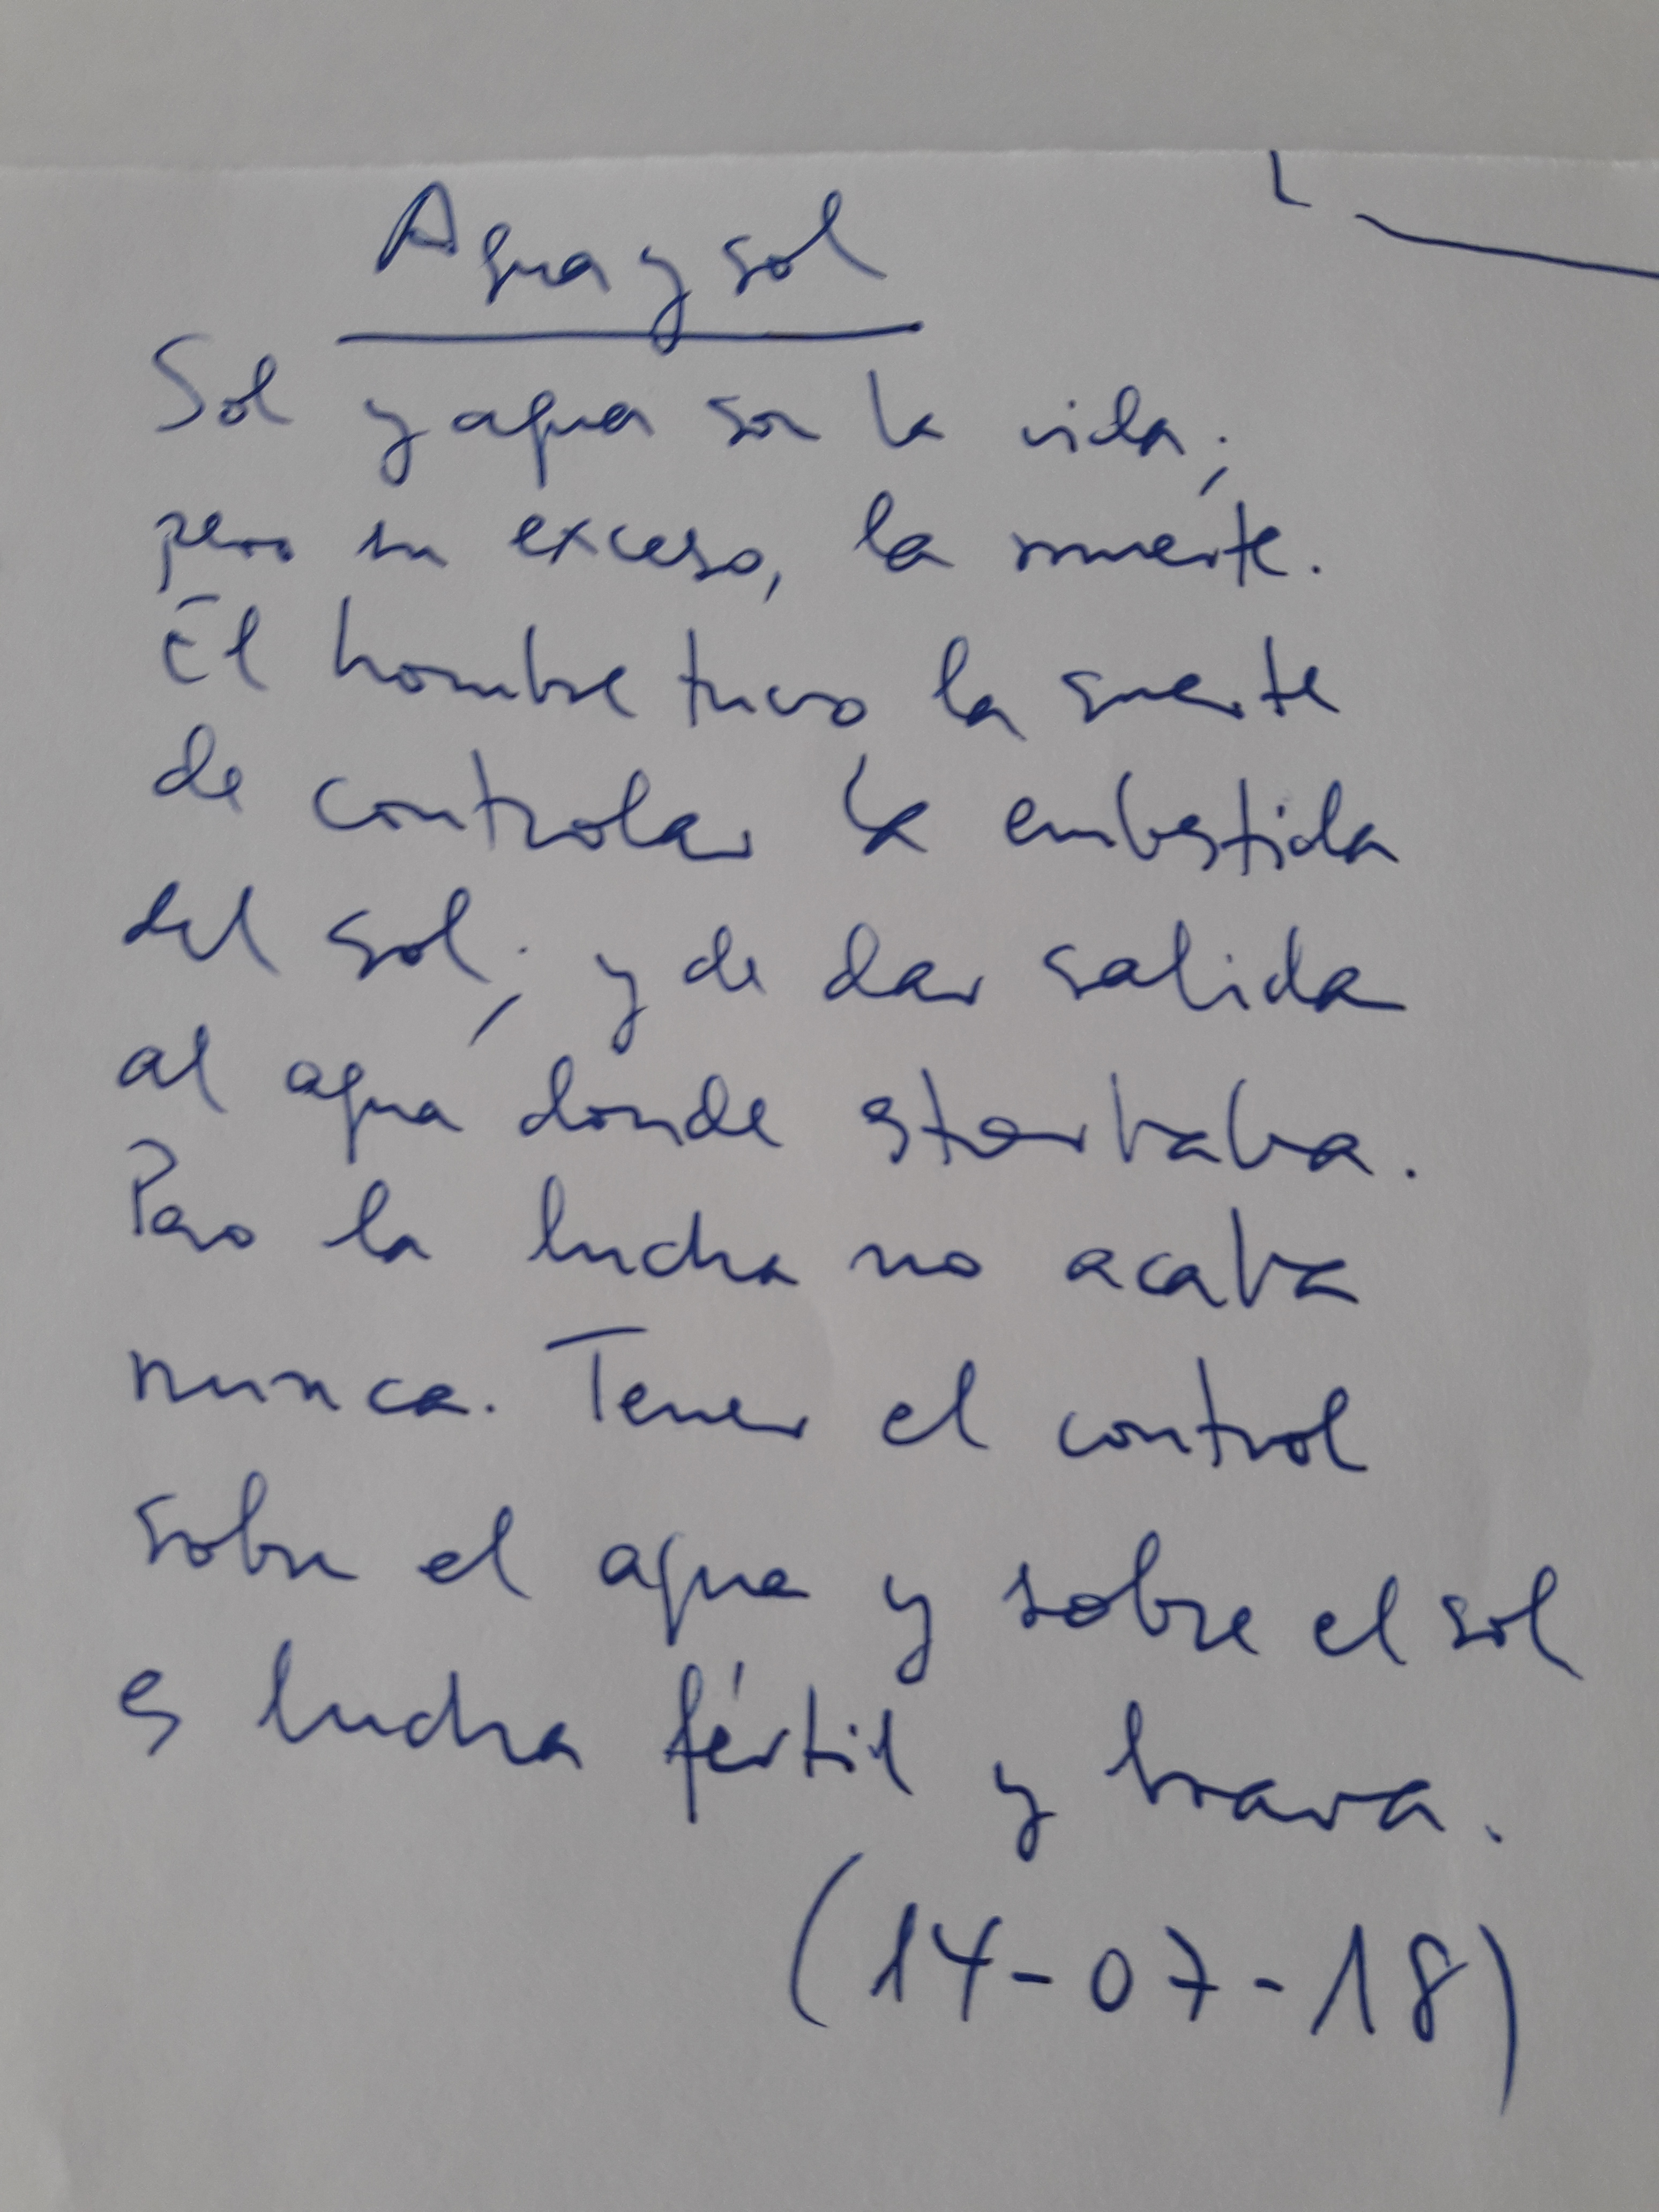 Agua y sol
Sol y agua son la vida;
pero su exceso, la muerte.
El hombre tuvo la suerte
de controlar la embestida
del sol; y de dar salida
al agua donde estorbaba.
Pero la lucha no acaba
nunca. Tener el control
sobre el agua y sobre el sol
es lucha fértil y brava.
(14-07-18)